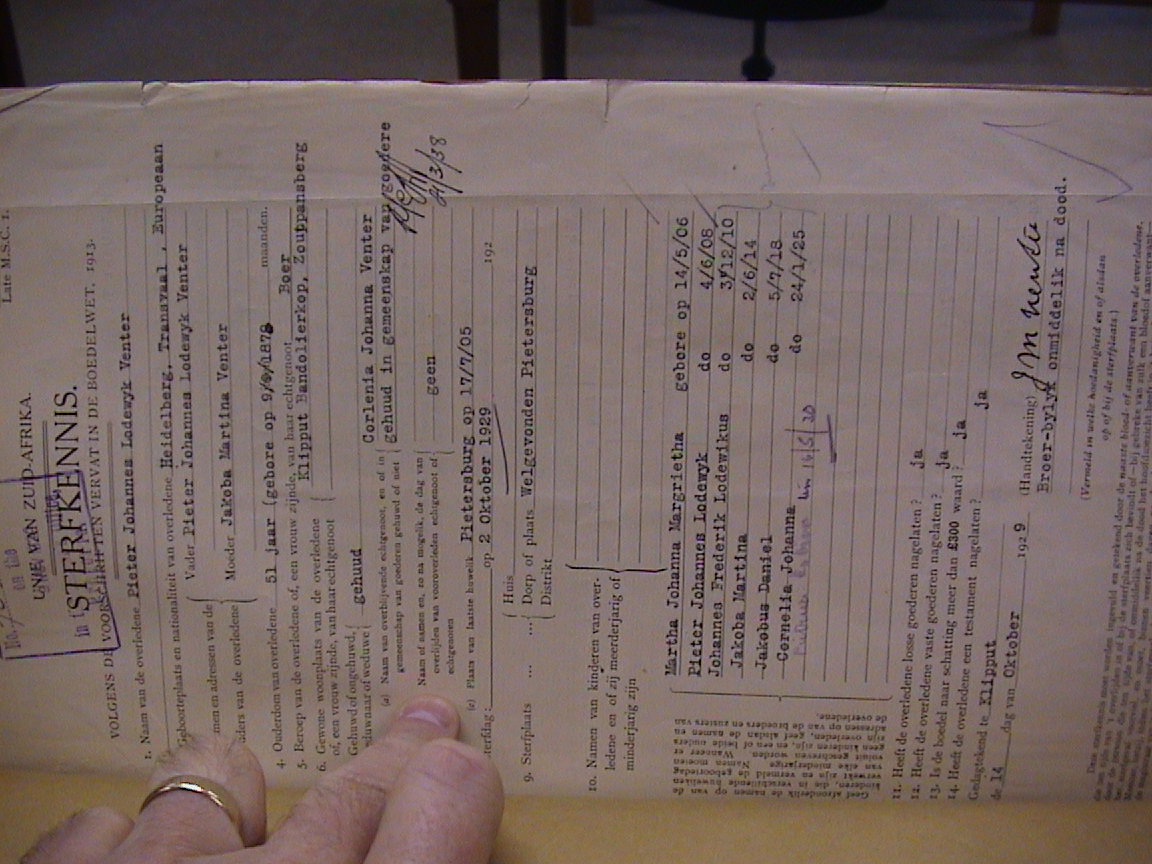 Late M.S.C. 1.
UNIE VAN ZUID-AFRIKA.
STERFKENNIS.
VOLGENS DE VOORSCHRIFTEN VERVAT IN DE BOEDELWET, 1913.
1. Naam van de overledene Pieter Johannes Lodewyk Venter
Geboorteplaats en nationaliteit van overledene Heidelberg, Transvaal , Europeaan
men en adressen van de Vader Pieter Johannes Lodewyk Venter
ders van de overledene Moeder Jakoba Martina Venter
4. Ouderdom van overledene 51 jaar (gebore op 9/9/1878 maanden.
5. Beroep van de overledene of, een vrouw zijnde, van haar echtgenoot Boer
6. Gewone woonplaats van de overledene Klipput Bandolierkop, Zoutpansberg
of, een vrouw zijnde, van haar echtgenoot
Gehuwd of ongehuwd, gehuwd
weduwnaar of weduwe
(a) Naam van overblijvende echtgenoot, en of in Corlenia Johanna Venter
gemeenschap van goederen gehuwd of niet gehuud in gemeenskap van goedere
Naam of namen en, zo na mogelik, de dag van
overlijden van vooroverleden echtgenoot of geen
echtgenoten
24/3/38
(c) Plaats van laatste huwelik Pietersburg op 17/7/05
terfdag: op 2 Oktober 1929 192
Huis
9. Sterfplaats ... ... Dorp of plaats Welgevonden Pietersburg
Distrikt
10. Namen van kinderen van over-
ledene en of zij meerderjarig of
minderjarig zijn
Geef afzonderlik de namen op van de
kinderen, die in verschillende huweliken
verwekt zijn en vermeld de geboortedag
van elke minderjarige. Namen moeten
voluit geschreven worden. Wanneer er
geen kinderen zijn, en een of beide ouders
zijn overleden, geef alsdan de namen en
adressen op van de broeders en zusters van
de overledene.
Martha Johanna Margrietha gebore op 14/5/06
Pieter Johannes Lodewyk do 4/6/08
Johannes Frederik Lodewikus do 3/12/10
Jakoba Martina do 2/6/14
Jakobus Daniel do 5/7/18
Cornelia Johanna do 24/1/25
11. Heeft de overledene losse goederen nagelaten ? ja
12. Heeft de overledene vaste goederen nagelaten ? ja
13. Is de boedel naar schatting meer dan £300 waard ? ja
14. Heeft de overledene een testament nagelaten ? ja
Gedagtekend te Klipput
de 14 dag van Oktober 192 9
(Handtekening) J M Venter
Broer-bylyk onmiddelik na dood.
(Vermeld in welke hoedanigheid en of alsdan
op of bij de sterfplaats.)